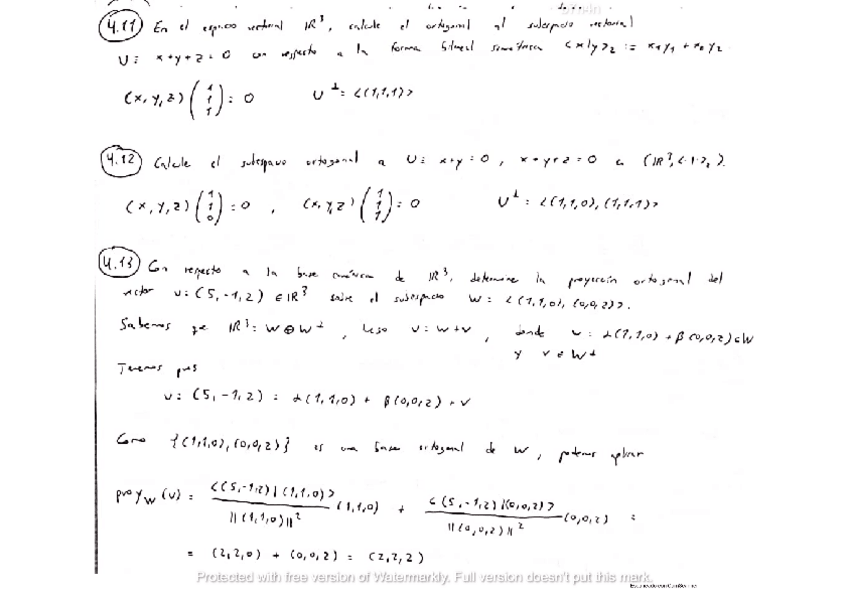 4.11 En el espacio vectorial IR³, calcule el ortogonal al subespacio vectorial
U: x+y+z=0 con respecto a la forma bilineal simétrica <x|y>₂ := x₁y₁ + x₂y₂.
(x,y,z) (1 1 1) = 0    U⊥ = <(1,1,1)>
4.12 Calcule el subespacio ortogonal a U: x+y=0, x+y+z=0 en (IR³, <·|·>₂).
(x,y,z) (1 1 0) = 0 , (x,y,z) (1 1 1) = 0    U⊥ = <(1,1,0), (1,1,1)>
4.13 Con respecto a la base canónica de IR³, determine la proyección ortogonal del
vector u=(5,-1,2) ∈ IR³ sobre el subespacio W = <(1,1,0), (0,0,2)>.
Sabemos que IR³ = W ⊕ W⊥ , luego u = w+v , donde w = α(1,1,0) + β(0,0,2) ∈ W
y v ∈ W⊥
Tenemos pues
u = (5,-1,2) = α(1,1,0) + β(0,0,2) + v
Como {(1,1,0), (0,0,2)} es una base ortogonal de W, podemos aplicar
proy_W (u) = <(5,-1,2)|(1,1,0)> / ||(1,1,0)||² (1,1,0) + <(5,-1,2)|(0,0,2)> / ||(0,0,2)||² (0,0,2) =
= (2,2,0) + (0,0,2) = (2,2,2)
Protected with free version of Watermarkly. Full version doesn't put this mark.
Escaneado con CamScanner